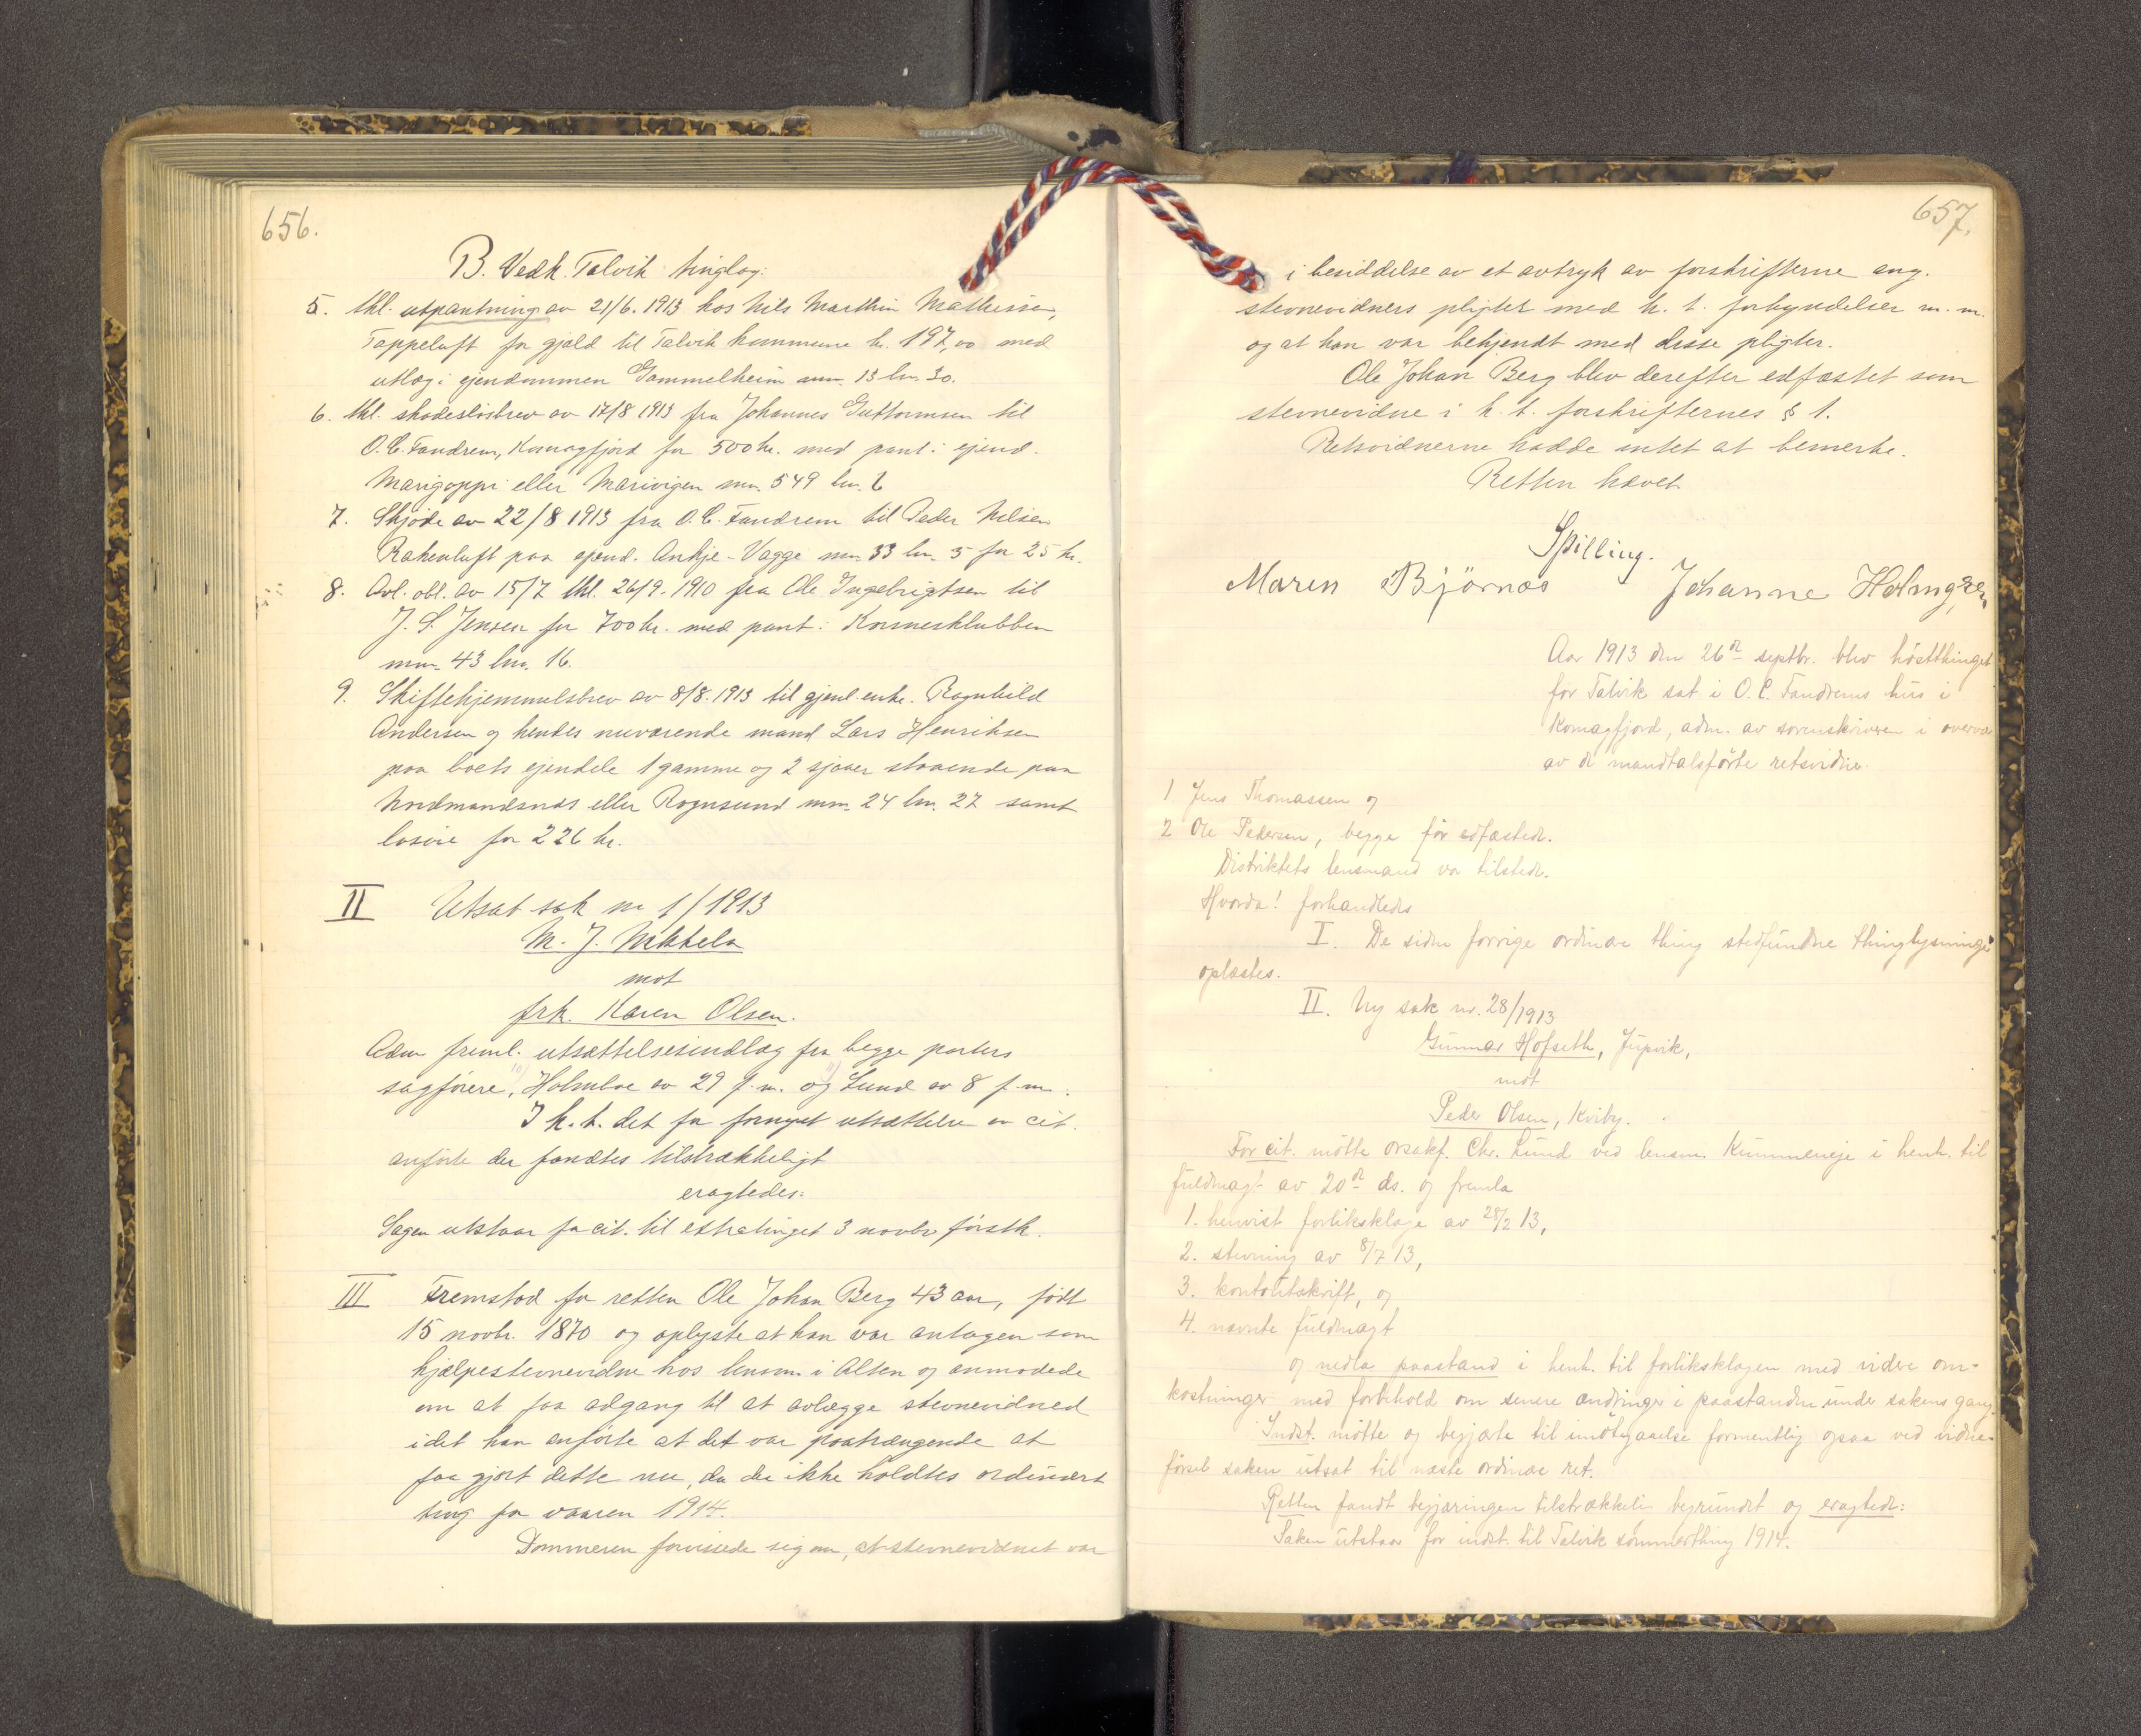 656.
B. Vedk. Talvik tinglag:
5. thl. utpantning av 21/6. 1913 hos Nils Marthin Mathissen,
Tappeluft for gjæld til Talvik kommune kr. 197,00 med
utlæg i ejendommen Gammelheim mnr. 13 lnr. 30.
6. thl. skadesløsbrev av 17/8 1913 fra Johannes Guttormsen til
O. C. Fandrem, Komagfjord for 500 kr. med pant i ejend.
Marigoppi eller Marivigen mnr. 549 lnr. 6
7. Skjøde av 22/8 1913 fra O. C. Fandrem til Peder Nilsen
Rakenluft paa ejend. Ankje-Vagge mnr. 33 lnr. 5 for 25 kr.
8. Avl. obl. av 15/7 thl. 26/9. 1910 fra Ole Ingebrigtsen til
J. S. Jensen for 700 kr. med pant i Kornesklubben
mnr. 43 lnr. 16.
9. Skiftehjemmelsbrev av 8/8. 1913 til gjenl. enke. Ragnhild
Andersen og hendes nuværende mand Lars Henriksen
paa boets ejendele 1 gamme og 2 sjaaer staaende paa
Nordmandsnæs eller Rognsund mnr. 24 lnr. 27 samt
løsøre for 226 kr.
II Utsat sak nr 1/1913
M. J. Nikkela
mot
frk. Karen Olsen.
Adm freml. utsættelsesindlæg fra begge parters
sagførere, Holmboe av 29 f. m. og Lund av 8 f. m.
I h. t. det for fornyet utsættelse av cit.
anførte der fandtes tilstrækkeligt
eragtedes:
Sagen utstaar for cit. til extratinget 3 novbr førstk.
III Fremstod for retten Ole Johan Berg 43 aar, født
15 novbr. 1870 og oplyste at han var antagen som
hjælpestevnevidne hos lensm. i Alten og anmodede
om at faa adgang til at avlægge stevnevidneed
idet han anførte at det var paatrængende at
faa gjort dette nu, da der ikke holdtes ordinært
ting før vaaren 1914.
Dommeren forvissede sig om, at stevnevidnet var
657.
i besiddelse av et avtryk av forskrifterne ang.
stevnevidners pligter med h. t. forkyndelser m. m.
og at han var bekjendt med disse pligter.
Ole Johan Berg blev derefter edfæstet som
stevnevidne i h. t. forskrifternes § 1.
Retsvidnerne hadde intet at bemerke.
Retten hævet
Spilling.
Maren Bjørnas Johanne Holmgren
Aar 1913 den 26de septbr. blev høstthinget
for Talvik sat i O. C. Fandrems hus i
Komagfjord, adm. av sorenskriveren i overvær
av de mandtalsførte retsvidne.
1 Jens Thomassen og
2 Ole Pedersen, begge før edfæstede.
Distriktets lensmand var tilstede.
Hvorda! forhandledes
I. De siden forrige ordinære thing stedfundne thinglysninger
oplæstes.
II. Ny sak nr. 28/1913
Gunnar Hofseth, Jupvik,
mot
Peder Olsen, Kviby.
For cit. møtte orsakf. Chr. Lund ved lensm. Kummeneje i henh. til
fuldmagt av 20de ds. og fremla
1. henvist forliksklage av 28/2 13,
2. stevning av 8/7 13,
3. kontoutskrift, og
4. nævnte fuldmagt
og nedla paastand i henh. til forliksklagen med videre om-
kostninger med forbehold om senere ændringer i paastanden under sakens gang.
Indst. møtte og begjærte til imøtegaaelse formentlig ogsaa ved vidne-
førsel saken utsat til næste ordinære ret.
Retten fandt begjæringen tilstrækkeli begrundet og eragtede:
Saken utstaar for indst. til Talvik sommerthing 1914.